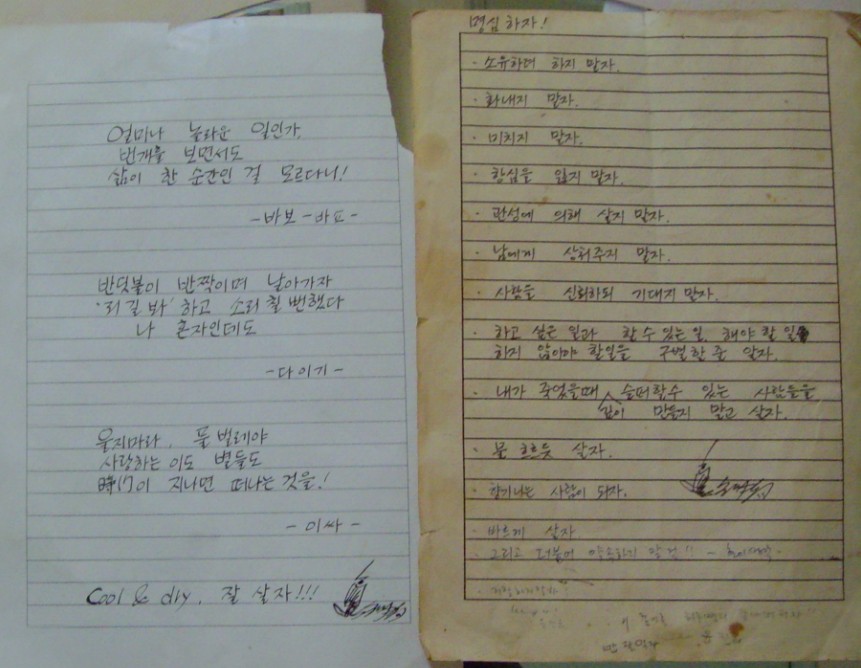 얼마나 놀라운 일인가,
번개를 보면서도
삶이 한 순간인 걸 모르다니!
-바보-바쇼-
반딧불이 반짝이며 날아가자
'저길 봐' 하고 소리 칠 뻔했다
나 혼자인데도
-다이기-
울지마라. 풀벌레야
사랑하는 이도 별들도
時間이 지나면 떠나는 것을!
-이싸-
Cool & dry. 잘 살자!!!
명심하자!
· 소유하려 하지 말자.
· 화내지 말자.
· 미치지 말자.
· 항심을 잃지 말자.
· 관성에 의해 살지 말자.
· 남에게 상처주지 말자.
· 사람을 신뢰하되 기대지 말자.
· 하고 싶은 일과 할 수 있는 일. 해야 할 일
하지 않아야 할일을 구별할 줄 알자.
· 내가 죽었을때 슬퍼할수 있는 사람들을
깊이 만들지 말고 살자.
· 물 흐르듯 살자.
· 향기나는 사람이 되자.
· 바르게 살자
· 그리고 더불어